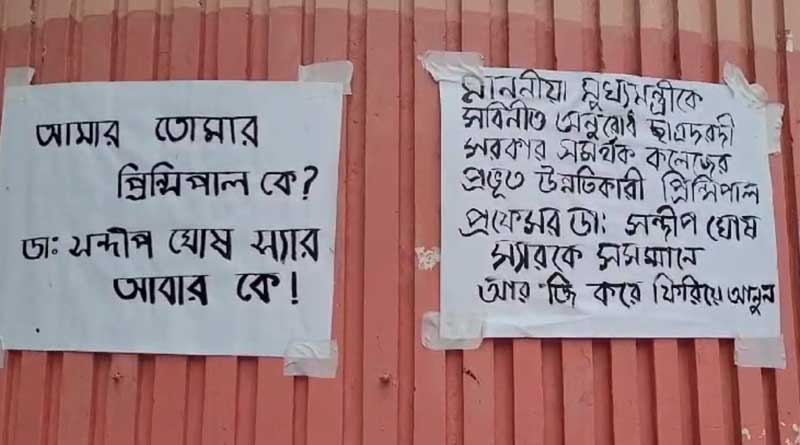 আমার তোমার
প্রিন্সিপাল কে?
ডাঃ সন্দীপ ঘোষ স্যার
আবার কে!
মাননীয়া মুখ্যমন্ত্রীকে
সবিনীত অনুরোধ ছাত্রদরদী
সরকার সমর্থক কলেজের
প্রভূত উন্নতিকারী প্রিন্সিপাল
প্রফেসর ডাঃ সন্দীপ ঘোষ
স্যারকে সসম্মানে
আর জি করে ফিরিয়ে আনুন